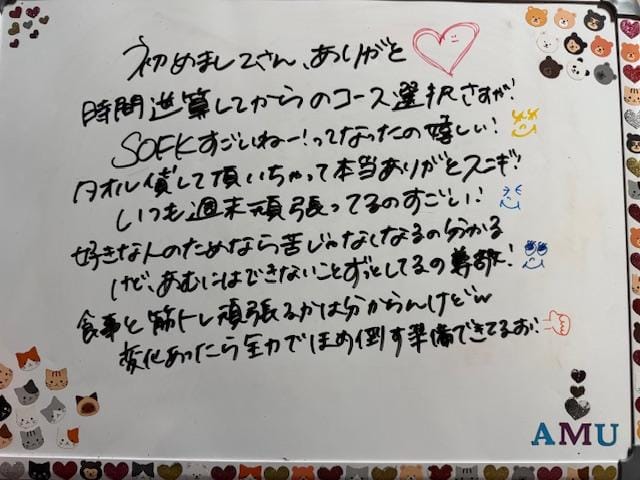 初めましてさん、ありがと
時間逆算してからのコース選択さすが!
SOFKすごいねー!ってなったの嬉しい!
タオル貸して頂いちゃって本当ありがとスニギ!
いつも週末頑張ってるのすごい!
好きな人のためなら苦じゃなくなるの分かる
けど、あむにはできないことずっとしてるの尊敬!
食事と筋トレ頑張るかは分からんけどw
変化あったら全力でほめ倒す準備できてるお!
AMU